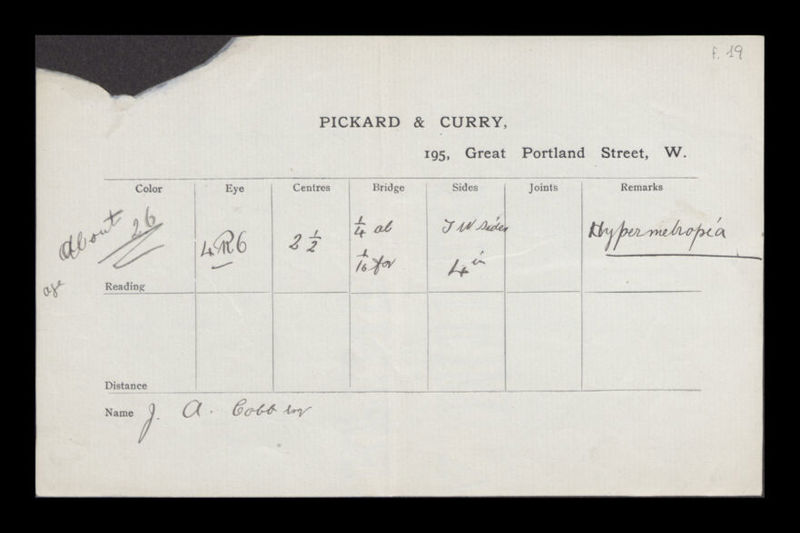 f. 19
PICKARD & CURRY,
195, Great Portland Street, W.
Color Eye Centres Bridge Sides Joints Remarks
About 26 4R6 2 1/2 1/4 at Sides Hypermetropia
1/16 for 4 in
age
Reading
Distance
Name J. A. Cobb Esq